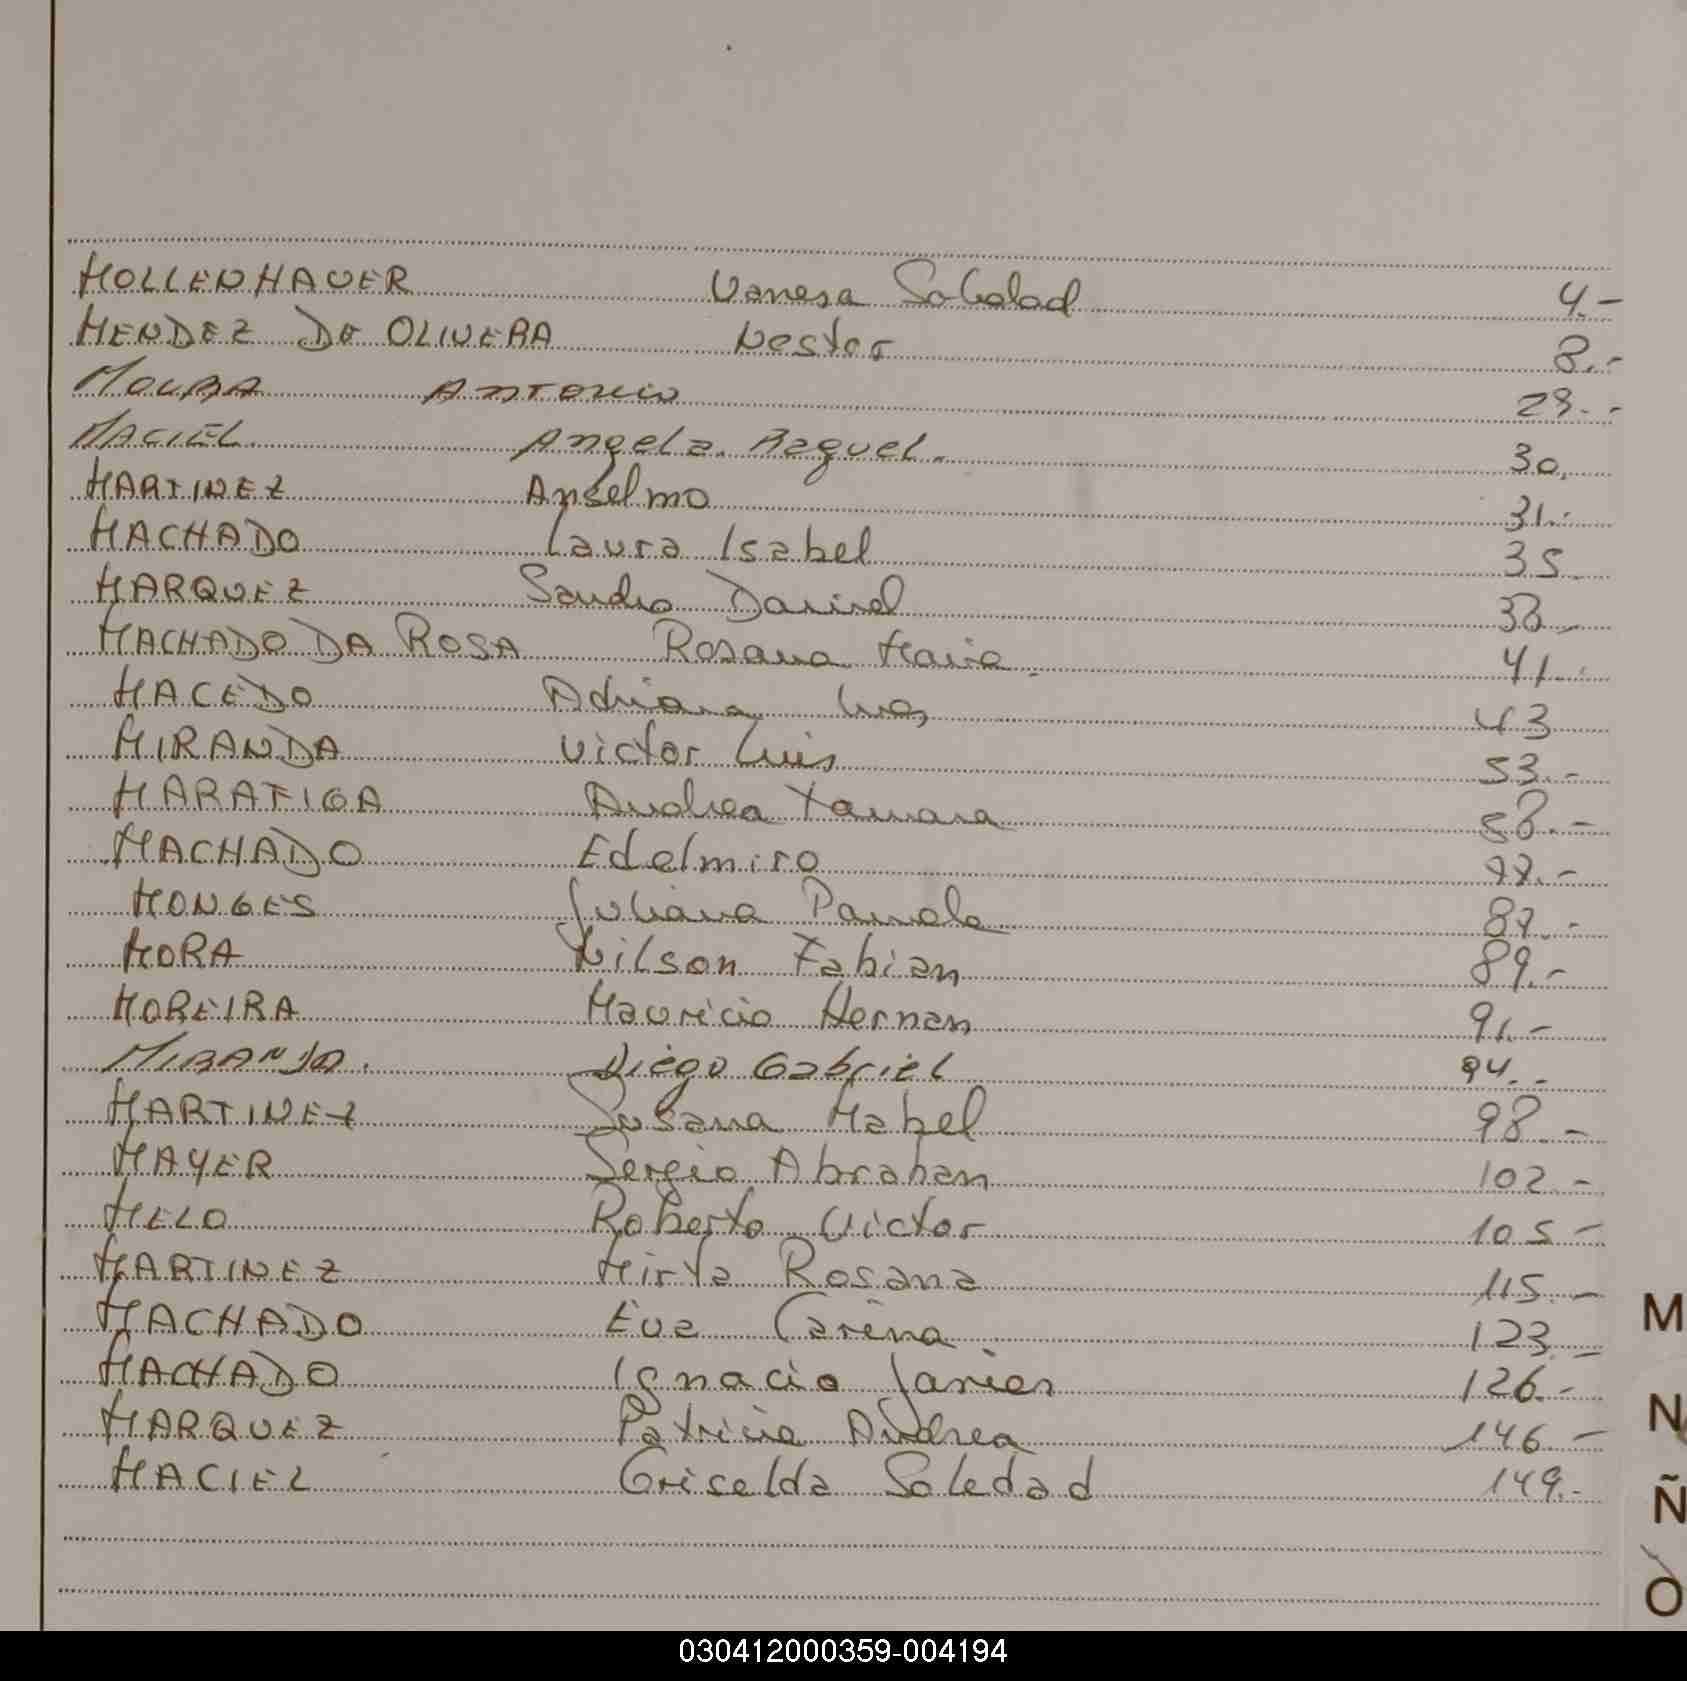 MOLLENHAUER Vanesa Soledad 4.-
MENDEZ DE OLIVERA Nestor 8.-
MOURA ANTONIO 29.-
MACIEL Angela Raquel. 30.
MARTINEZ Anselmo 31.-
MACHADO Laura Isabel 35.
MARQUEZ Sandro Daniel 38.-
MACHADO DA ROSA Rosana Maria 41.-
MACEDO Adriana 43
MIRANDA Victor Luis 53.-
MARATIGA Andrea Tamara 58.-
MACHADO Edelmiro 77.-
MONGES Juliana Pamela 87.-
MORA Nilson Fabian 89.-
MOREIRA Mauricio Hernan 91.-
MIRANDA. Diego Gabriel 94.-
MARTINEZ Susana Mabel 98.-
MAYER Sergio Abraham 102.-
MELO Roberto Victor 105.-
MARTINEZ Mirta Rosana 115.-
MACHADO Eva Carina 123.-
MACHADO Ignacio Javier 126.-
MARQUEZ Patricia Andrea 146.-
MACIEL Griselda Soledad 149.-
M
N
Ñ
O
030412000359-004194